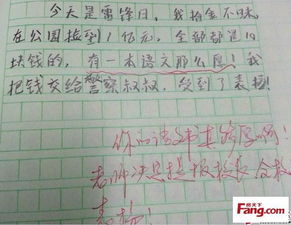 今天是雷锋日，我拾金不昧，
在公园捡到1亿元，全部都是10
块钱的，有一本语文那么厚！我
把钱交给警察叔叔，受到了表扬！
你的语文书真够厚啊！
老师决定提报校长 全校
表扬！
房天下
Fang.com